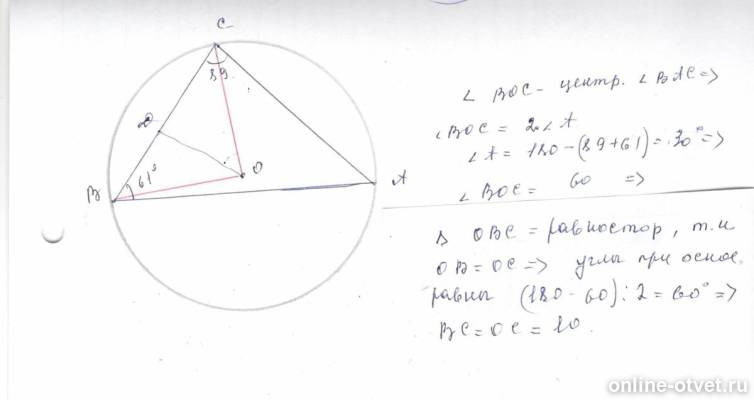 C
89
∠ BOC - центр. ∠ BAC =>
∠BOC = 2∠A
∠A = 180-(89+61) = 30° =>
∠ BOC = 60 =>
D
O
A
B
61°
Δ OBC = равностор, т.к
OB=OC => углы при основ.
равны (180-60):2=60° =>
BC=OC=10.
online-otvet.ru